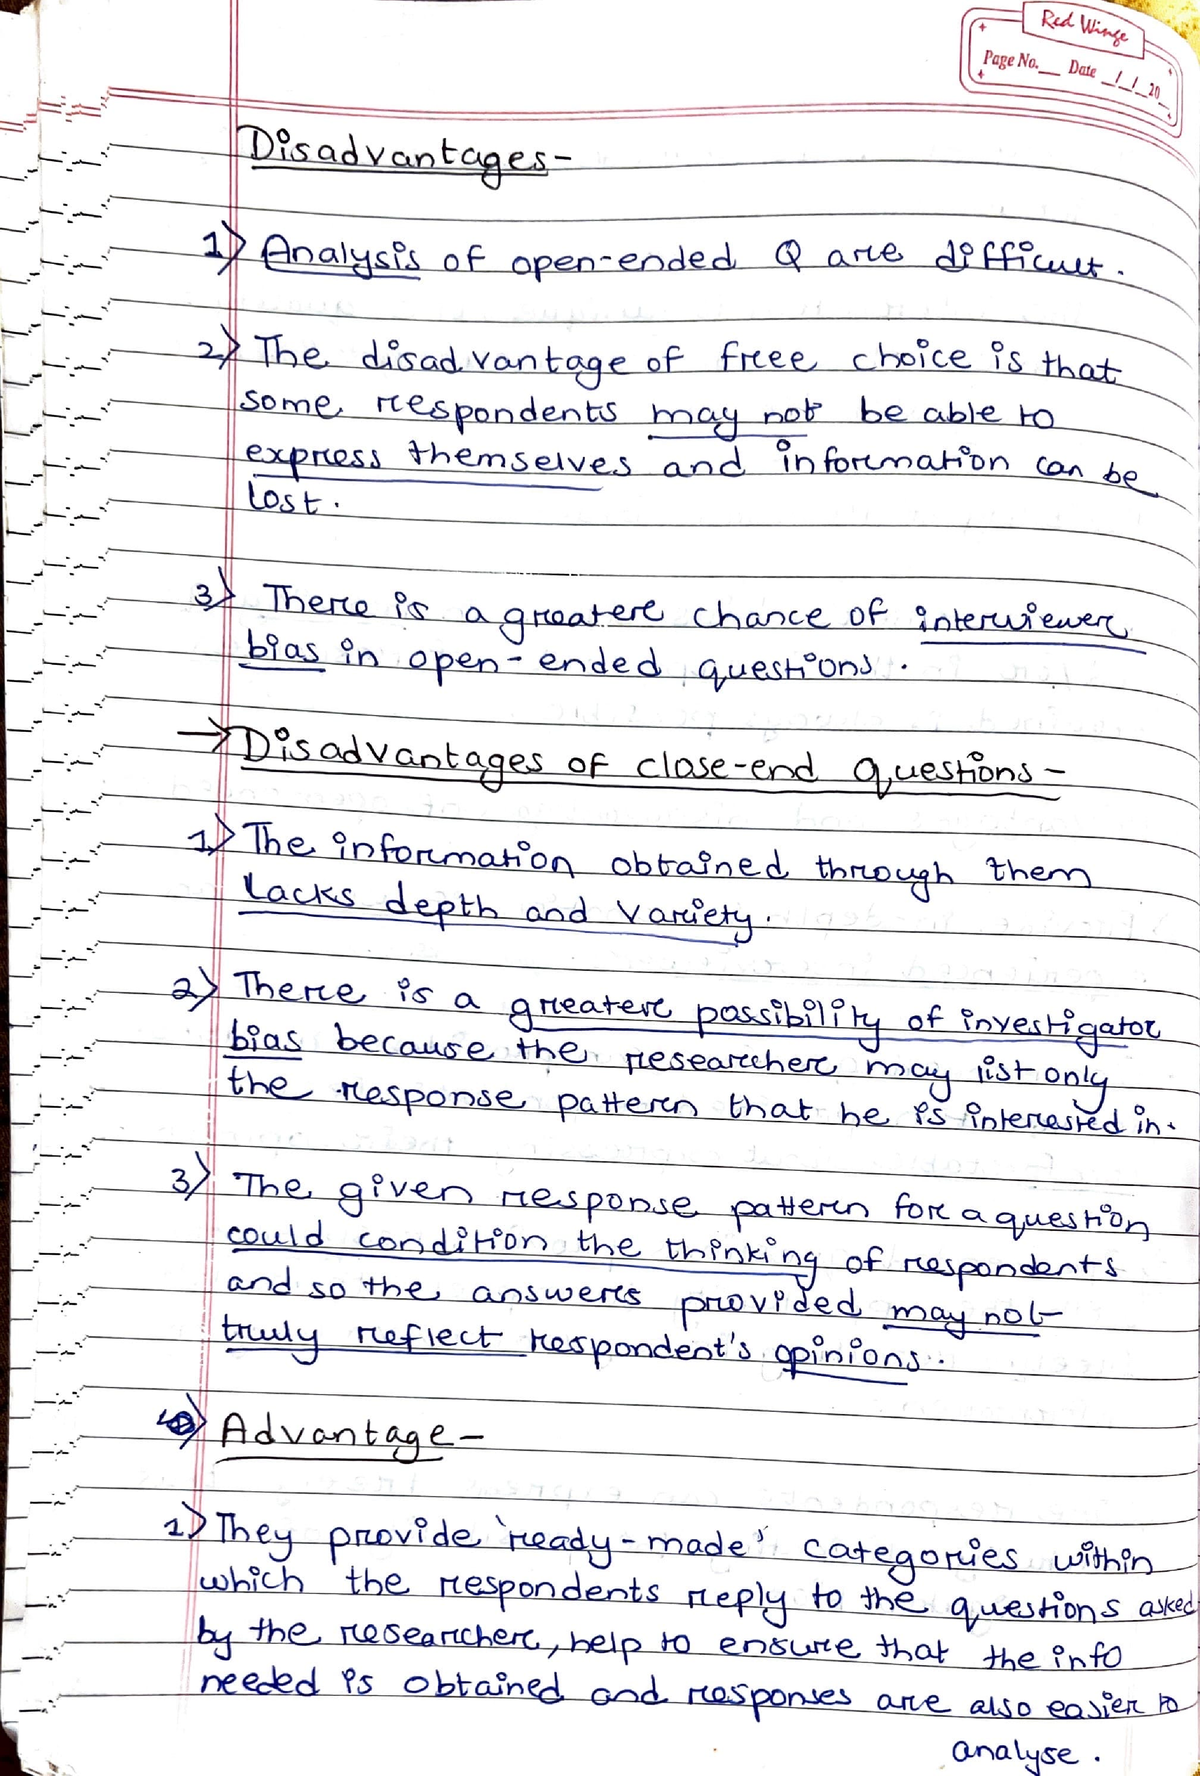 Red Wings
Page No.__ Date _/_/_20_
Disadvantages-
1) Analysis of open-ended Q are difficult.
2) The disadvantage of free choice is that
some respondents may not be able to
express themselves and information can be
lost.
3) There is a greater chance of interviewer
bias in open-ended questions.
→ Disadvantages of close-end questions-
1) The information obtained through them
lacks depth and variety.
2) There is a greater possibility of investigator
bias because the researcher may list only
the response pattern that he is interested in.
3) The given response pattern for a question
could condition the thinking of respondents
and so the answers provided may not
truly reflect respondent's opinions.
Advantage-
1) They provide 'ready-made' categories within
which the respondents reply to the questions asked
by the researcher, help to ensure that the info
needed is obtained and responses are also easier to
analyse.